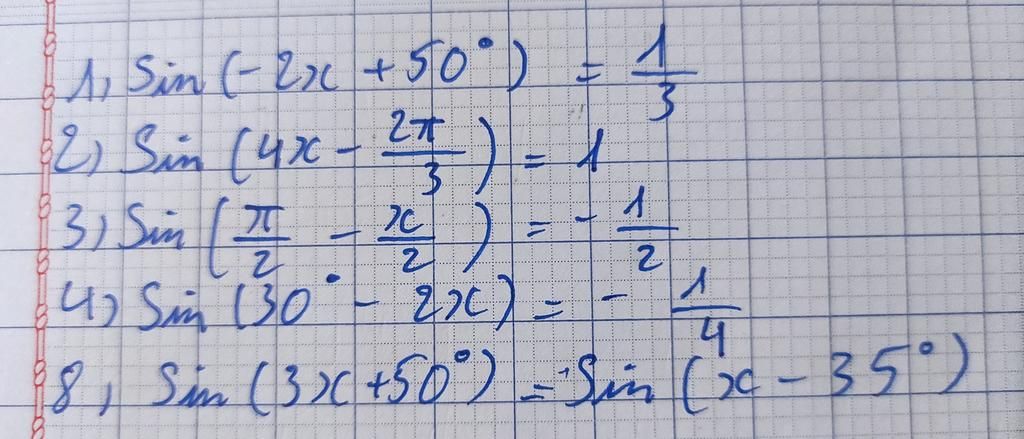 1) Sin (-2x + 50°) = 1/3
2) Sin (4x - 2π/3) = 1
3) Sin (π/2 - x/2) = - 1/2
4) Sin (30° - 2x) = - 1/4
8) Sin (3x + 50°) = -Sin (x - 35°)